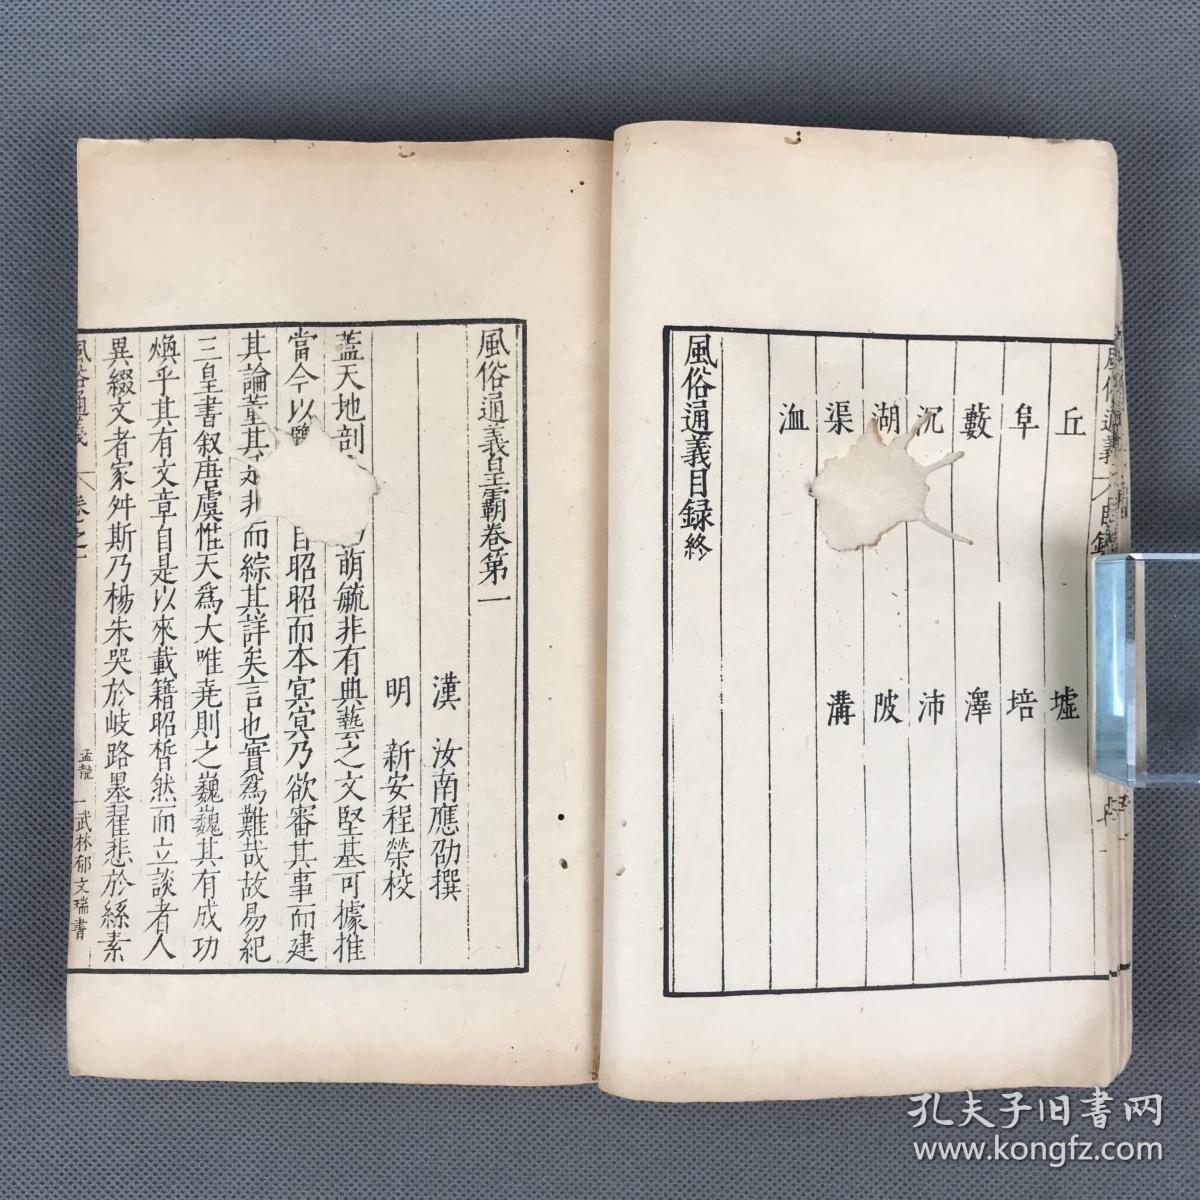 丘 墟
阜 培
藪 澤
沉 沛
湖 陂
渠 溝
洫
風俗通義目録終
風俗通義皇霸卷第一
漢 汝南應劭撰
明 新安程榮校
蓋天地剖 萌毓非有典藝之文堅基可據推
當今以 昭昭而本冥冥乃欲審其事而建
其論董其 非而綜其詳矣言也實爲難哉故易紀
三皇書叙唐虞惟天爲大唯堯則之巍巍其有成功
煥乎其有文章自是以來載籍昭晳然而立談者人
異綴文者家舛斯乃楊朱哭於岐路墨翟悲於絲素
風俗通義 卷之一 孟龍 一 武林郁文瑞書
孔夫子旧书网
www.kongfz.com